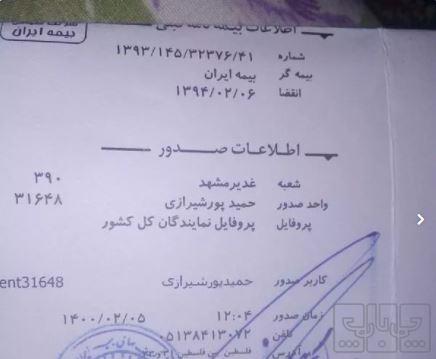 بیمه ایران
اطلاعات بیمه نامه قبلی
شماره ۱۳۹۳/۱۴۵/۳۲۳۷۶/۴۱
بیمه گر بیمه ایران
انقضا ۱۳۹۴/۰۲/۰۶
اطلاعات صدور
شعبه غدیرمشهد ۳۹۰
واحد صدور حمید پورشیرازی ۳۱۶۴۸
پروفایل پروفایل نمایندگان کل کشور
کاربر صدور حمیدپورشیرازی ent31648
زمان صدور ۱۲:۰۴ ۱۴۰۰/۰۲/۰۵
تلفن ۰۵۱۳۸۴۱۳۰۷۲